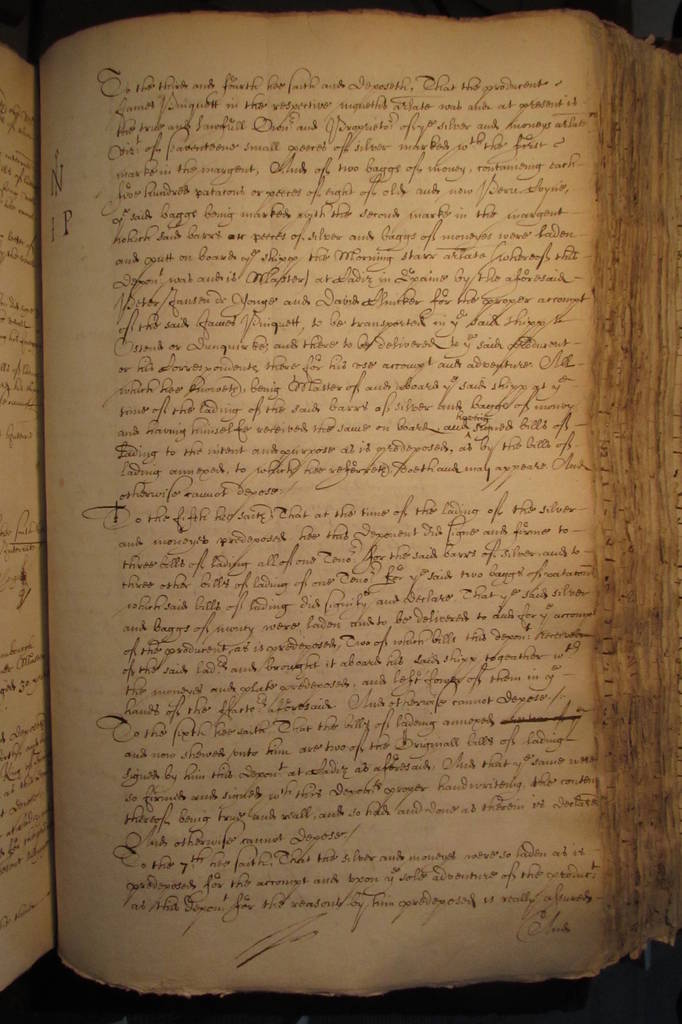 To the third and fourth hee saith and deposeth, That the producent
James Pinquett in the respective moneths arlate was and at present is
the true and lawfull Owner and Proprietor of ye silver and moneys arlate
vizt of seaventeene small peeces of silver marked wth the first
marke in the margent, And of two baggs of money, contaieing each
five hundred patacons or peeces of eight of old and new Peru Coyne,
N
ye said baggs being marked wyth the second marke in the margent
I P
which said barrs or peeces of silver and baggs of moneyes were laden
and putt on board ye shipp the Morning starr arlate (whereof this
depont was and is Master) at Cadiz in Spaine by the aforesaid
Peter Jansen de Jonge and David for the proper accompt
of the said James Pinquett, to be transported in ye said shipp to
Ostend or Dunquirke, and there to be delivered to ye said producent
or his Correspondents there for his use accompt and adventure. All
which hee knoweth, being Master of and aboard ye said shipp at ye
time of the lading of the said barrs of silver and baggs of money
and having himselfe received the same on board and having signed bills of
lading to the intent and purpose as is predeposed, as by the bills of
lading annexed, to which hee referreth, doeth and may appeare. And
otherwise cannot depose.
To the fifth hee saith, That at the time of the lading of the silver
and moneyes predeposed hee this deponent did signe and firme to
three bills of lading all of one Tenor for the said barrs of silver, and to
three other bills of lading of one Tenor for ye said two baggs of patacons
which said bills of lading did signify and declare That ye said silver
and baggs of money were laden and to be delivered to and for ye accompt
of the producent, as is predeposed, Two of which bills this depont received
of the said lad and brought it aboard his said shipp togeather wth
the moneyes and plate predeposed, and left some of them in ye
hands of the ffactors aforesaid. And otherwise cannot depose.
To the sixth hee saith, That the bills of ladeing annexed
and now shewed unto him are two of the Originall bills of lading
signed by him this depont at Cadiz as aforesaid. And that ye same were
so firmed and signed wth this deponts proper handwriteing, the contents
thereof being true and reall, and so had and done as therein is declared
And otherwise cannot depose
To the 7th hee saith, That the silver and moneyes were so laden as is
predeposed for the accompt and upon ye sole adventure of the product
as this depont for the reasons by him predeposed is really assured
And